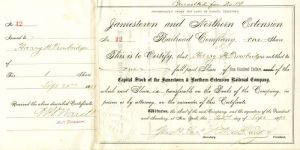 No. 12
Issued to
Harry H. Pembridge
1 Share
Sept 20th
Received the above described Certificate
INCORPORATED UNDER THE LAWS OF DAKOTA TERRITORY.
Jamestown and Northern Extension
No. 12
Railroad Company. One Share
This is to Certify, that Harry H. Pembridge is entitled to
One full paid Share of One Hundred Dollars each of the
Capital Stock of the Jamestown & Northern Extension Railroad Company,
which said Share is transferable on the Books of the Company, in
person or by attorney, on the surrender of this Certificate.
Witness the seal of the said Company, and the signatures of the President
and Secretary, at New York, this 20th day of Sept
Secretary.
President.